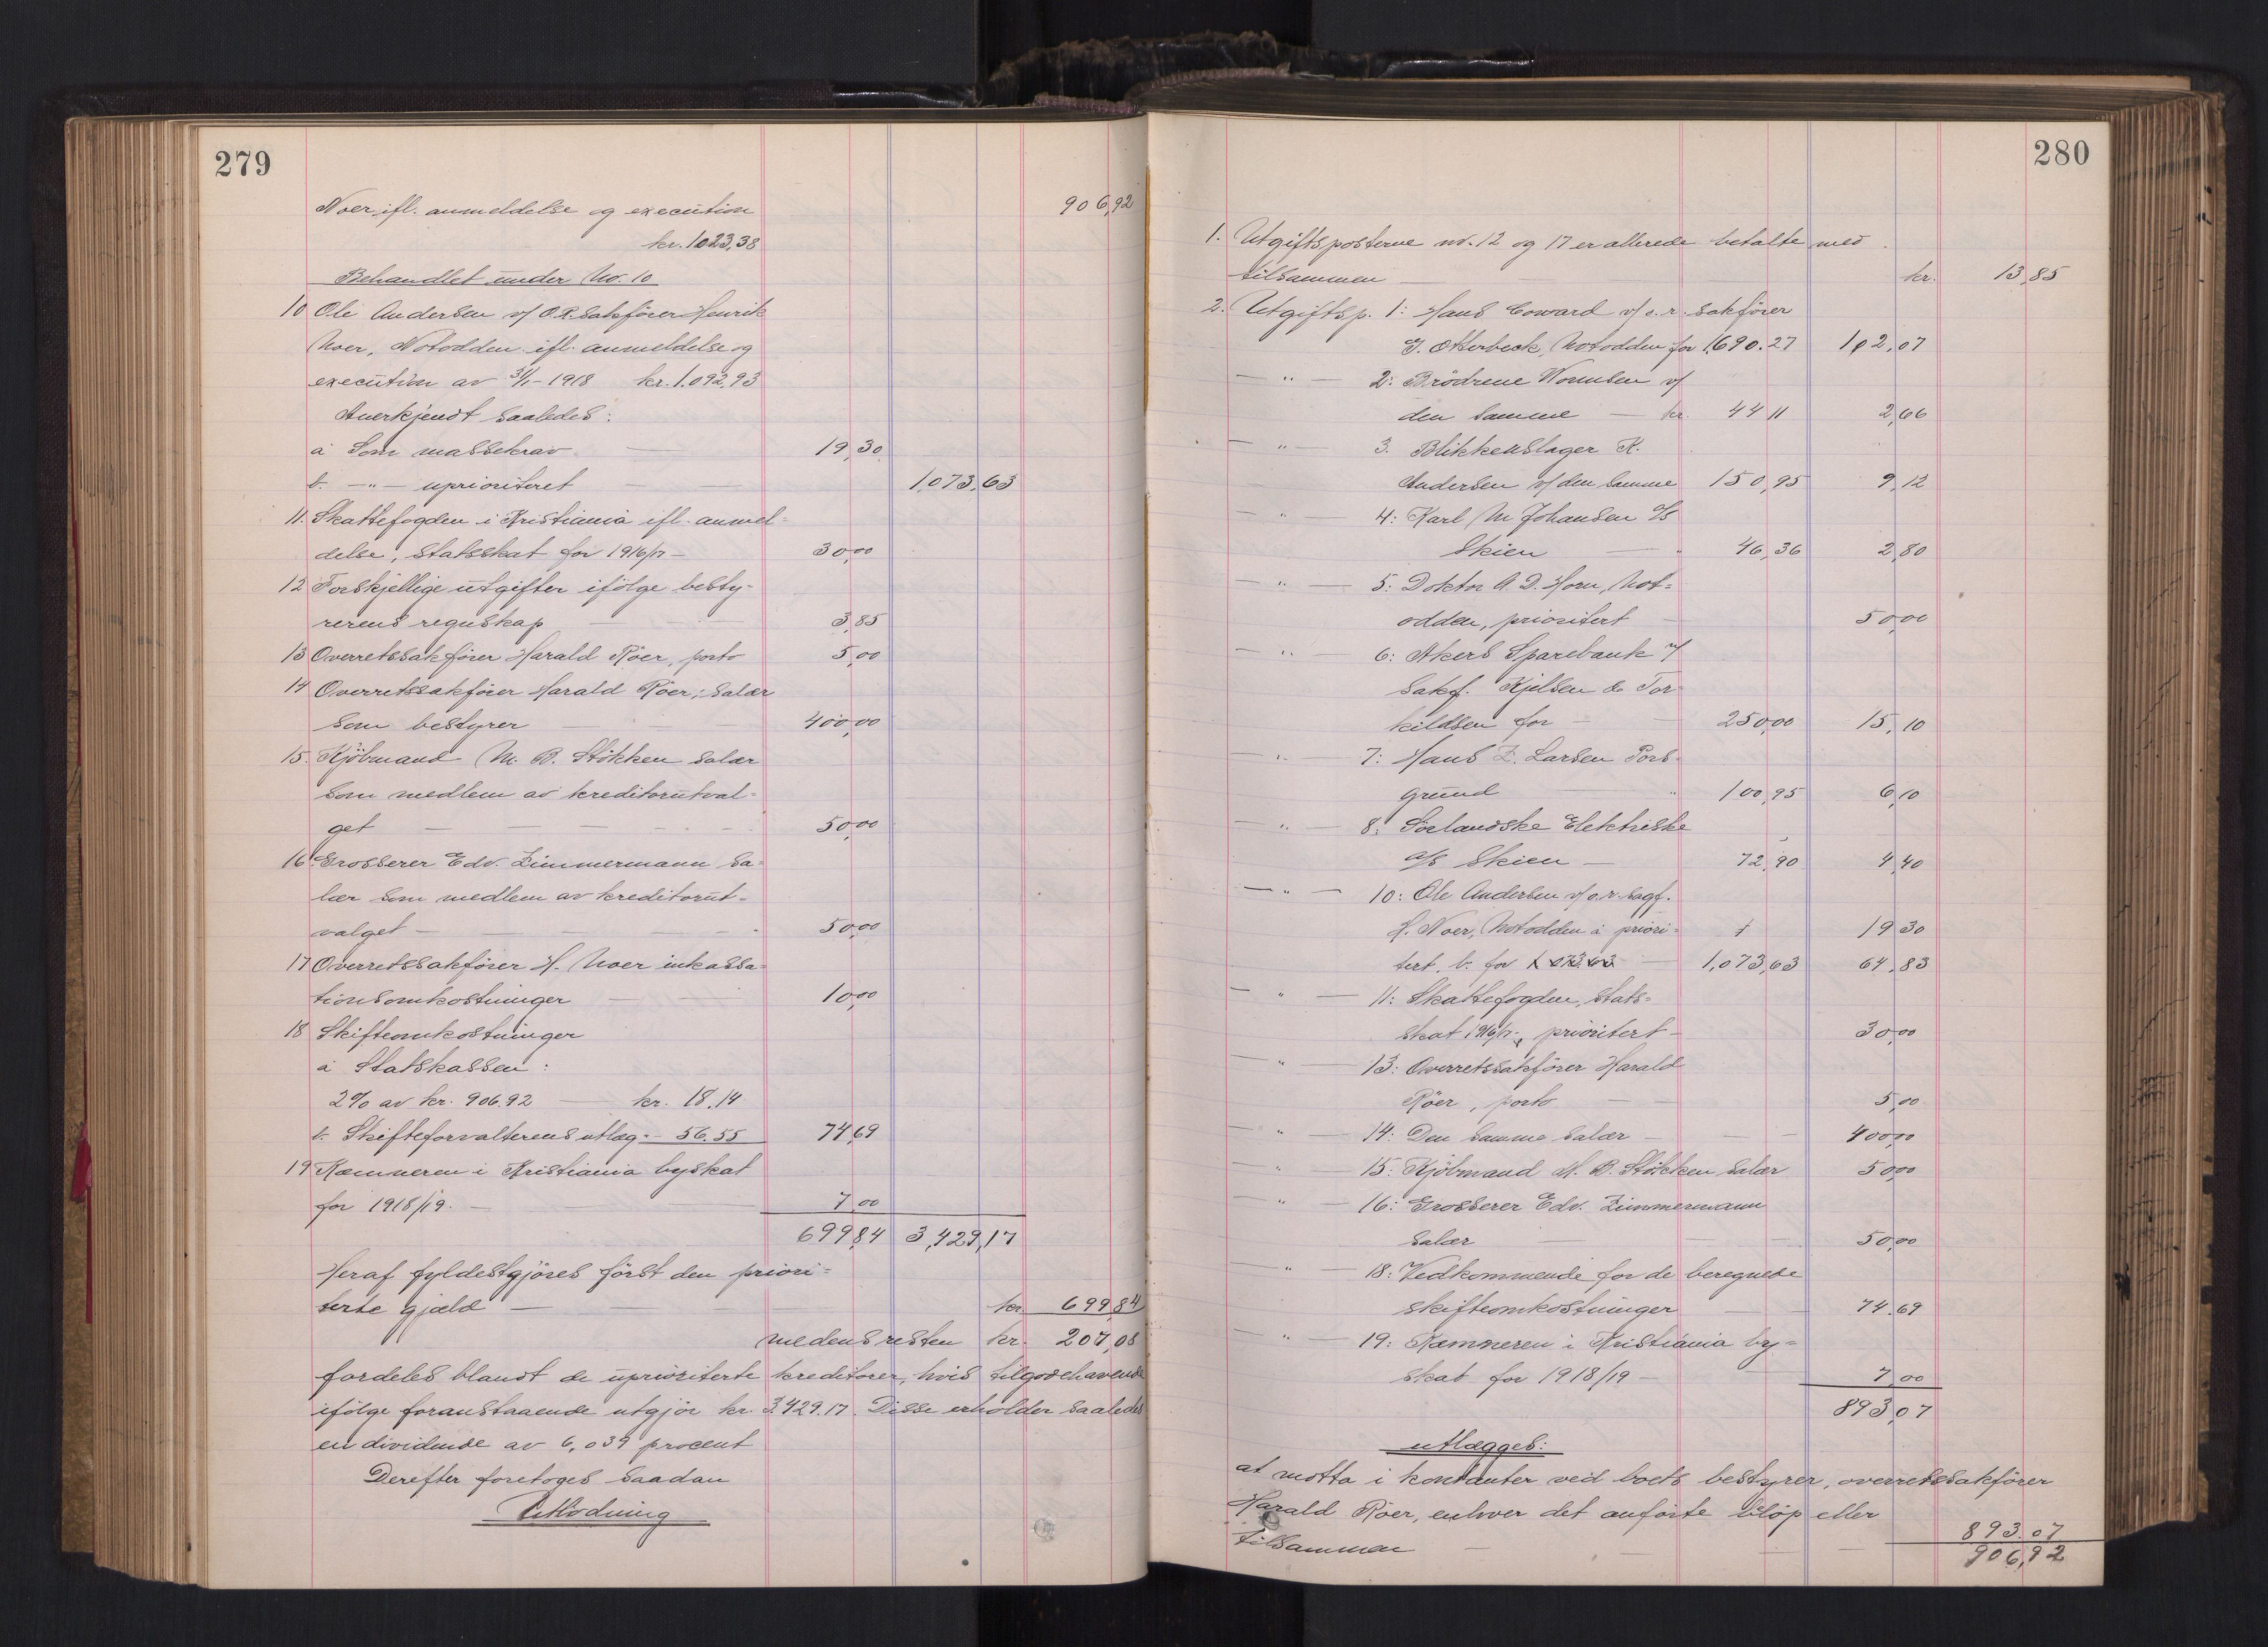 279
Noer, ifl. anmeldelse og execution 906,92
kr. 1.023,38
Behandlet under No. 10
10 Ole Andersen v/ O.R.sakfører Henrik
Noer, Notodden ifl. anmeldelse og
execution av 31/1-1918 kr. 1.092,93
Anerkjendt saaledes:
a Som massekrav — 19,30
b. —"— uprioriteret — 1,073,63
11. Skattefogden i Kristiania ifl. anmel=
delse, statsskat for 1916/17 — 30,00
12 Forskjellige utgifter ifölge besty-
rerens regnskap — 3,85
13 Overretssakförer Harald Röer, porto 5,00
14 Overretssakförer Harald Röer, salær
som bestyrer — 400,00
15. Kjöbmand M. B. Stökken salær
som medlem av kreditorutval-
get — 50,00
16. Grosserer Edv. Zimmermann sa=
lær som medlem av kreditorut-
valget — 50,00
17 Overretssakfører H. Noer inkassa=
tionsomkostninger — 10,00
18 Skifteomkostninger
a Statskassen:
2% av kr. 906.92 — kr. 18.14
b. Skifteforvalterens utlæg - 56.55 74,69
19 Kæmneren i Kristiania byskat
for 1918/19. — 7,00
699,84 3,429,17
Heraf fyldestgjöres först den priori=
terte gjæld — kr. 699,84
medens resten kr. 207,08
fordeles blandt de uprioriterte kreditorer, hvis tilgodehavende
ifölge foranstaaende utgjör kr. 3.429.17. Disse erholder saaledes
en dividende av 6,039 procent
Derefter foretoges saadan
Utlodning
280
1. Utgiftsposterne nr. 12 og 17 er allerede betalte med
tilsammen — kr. 13,85
2. Utgiftsp. 1: Hans Coward v/ o.r. sakförer
J. Otterbeck, Notodden for 1,690.27 102,07
—"— 2: Brödrene Wonnsen v/
den samme — kr. 44 11 2,66
—"— 3. Blikkenslager K.
Andersen v/ den samme 150,95 9,12
—"— 4: Karl M Johansen A/S
Skien — 46,36 2,80
—"— 5: Doktor A. D. Horn, Not=
odden, prioritert — 50,00
—"— 6: Akers Sparebank v/
sakf. Kjelsen & Tor
kildsen for — 250,00 15,10
—"— 7: Hans Z. Larsen Pors-
grund — " 100,95 6,10
—"— 8: Sörlandske Elektriske
A/S Skien — 72,90 4,40
—"— 10: Ole Andersen v/ o.r. sagf.
H. Noer, Notodden a priori= 19 30
tert, b. for 1.073.63 — 1,073,63 64,83
—"— 11: Skattefogden, stats=
skat 1916/17, prioritert — 30,00
—"— 13: Overretssakförer Harald
Röer, porto — 5,00
—"— 14: Den samme salær — 400,00
—"— 15: Kjöbmand M. B. Stökken, salær 50,00
—"— 16: Grosserer Edv. Zimmermann
salær — 50,00
—"— 18: Vedkommende for de beregnede
skifteomkostninger — 74.69
—"— 19: Kæmneren i Kristiania by=
skat for 1918/19 — 7,00
893,07
utlægges:
at motta i kontanter ved boets bestyrer, overretssakförer
Harald Röer, enhver det anförte belöp eller
tilsammen — 893.07
906,92